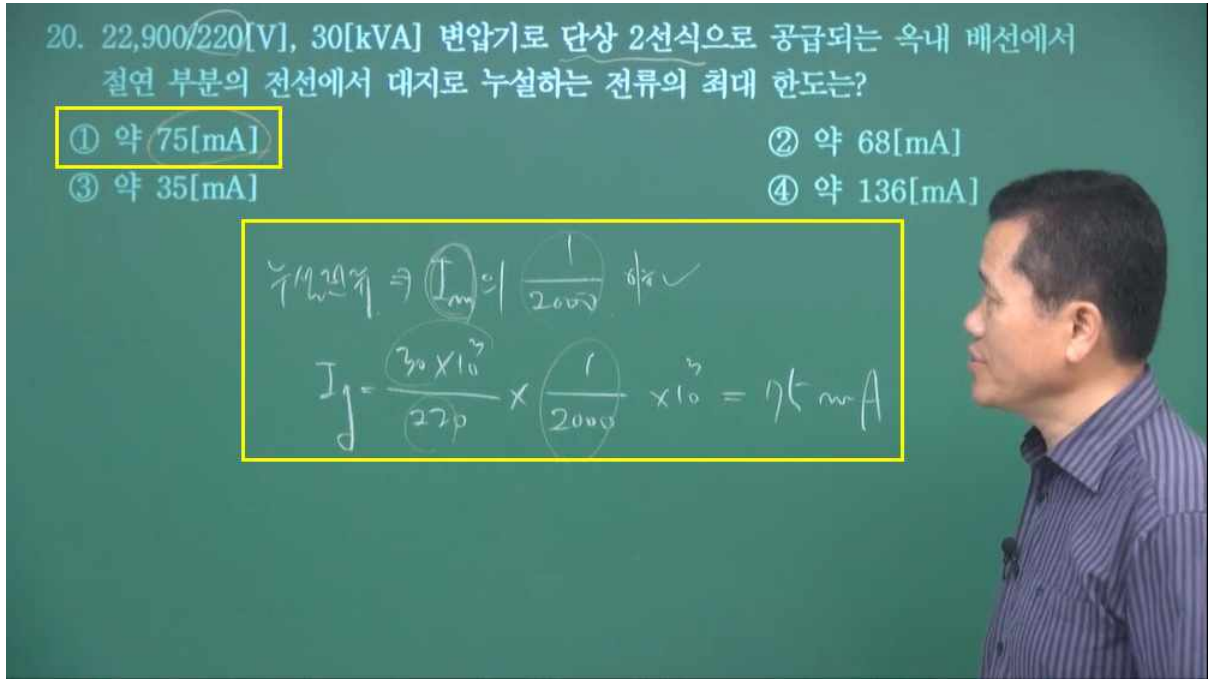 20. 22,900/220[V], 30[kVA] 변압기로 단상 2선식으로 공급되는 옥내 배선에서
절연 부분의 전선에서 대지로 누설하는 전류의 최대 한도는?
① 약 75[mA] ② 약 68[mA]
③ 약 35[mA] ④ 약 136[mA]
누설전류 ⇒ Im의 1/2000 이하
Ig = 30×10³/220 × 1/2000 ×10³ = 75 mA